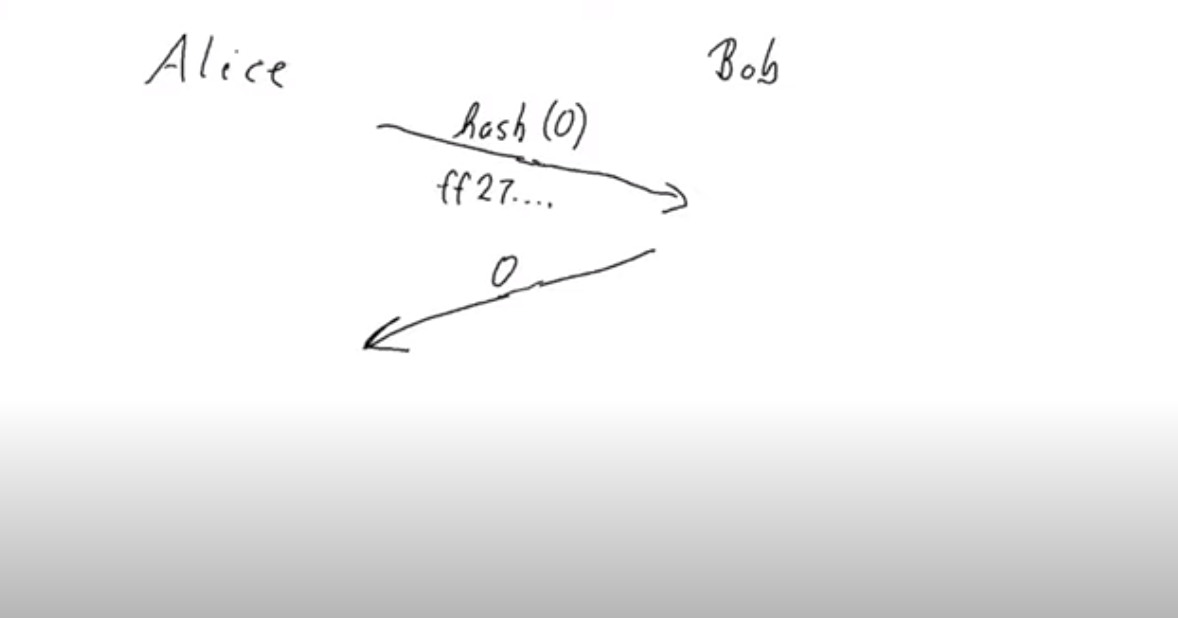 Alice Bob
hash (0)
ff27....
0